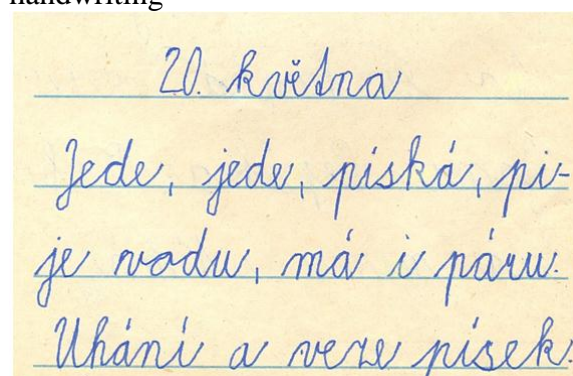 handwriting
20. května
Jede, jede, píská, pi-
je vodu, má i páru.
Uhání a veze písek.